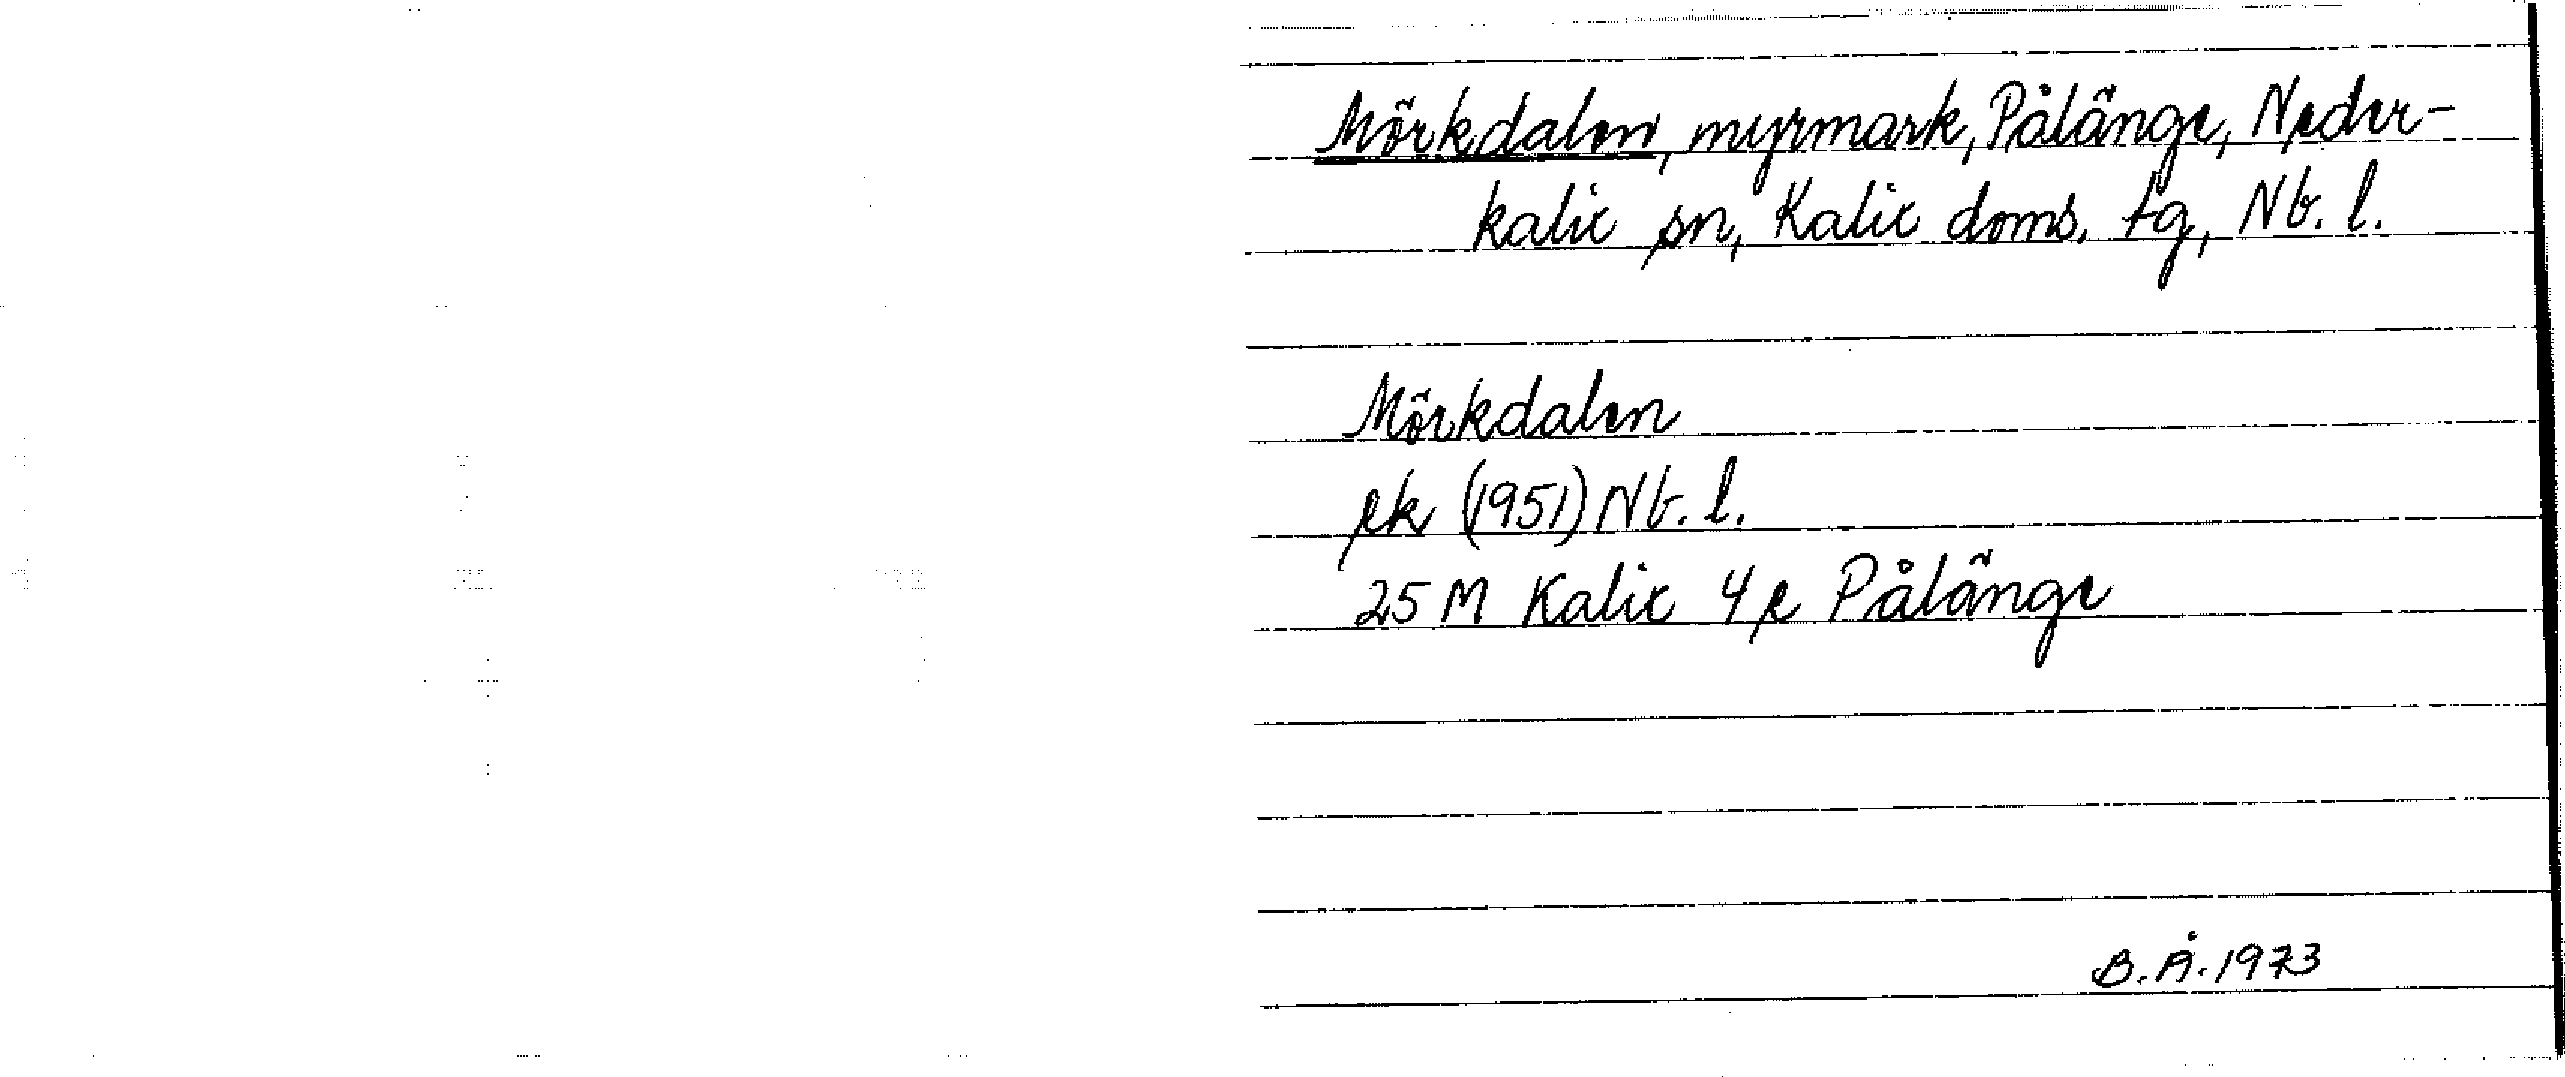 Mörkdalen, myrmark, Pålänge, Neder-
kalix sn, Kalix doms. tg, Nb. l.
Mörkdalen
ek (1951) Nb. l.
25 M Kalix 4 e Pålänge
B.Å. 1973